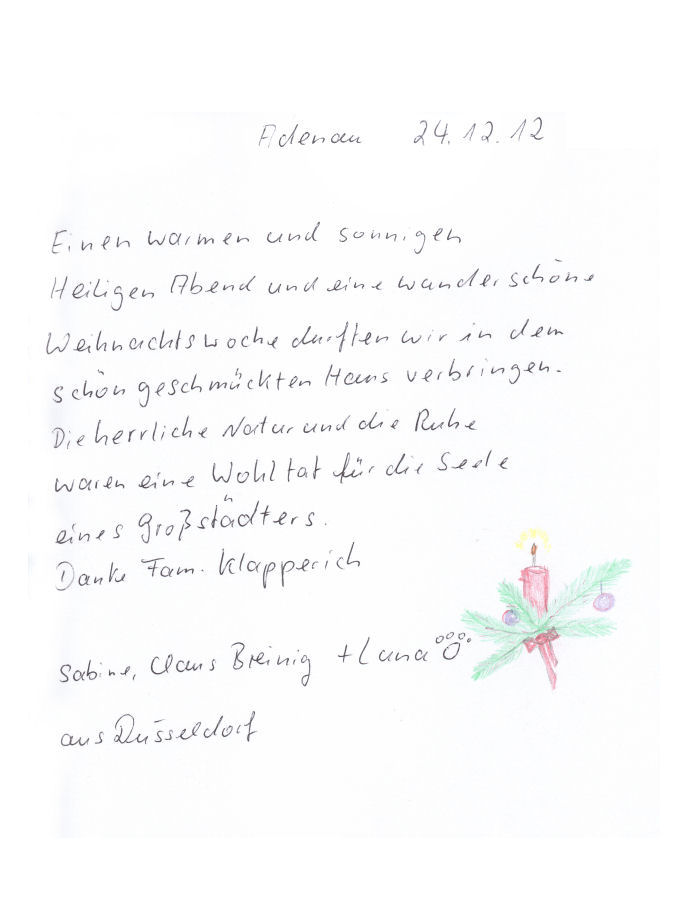 Adenau 24.12.12
Einen warmen und sonnigen
Heiligen Abend und eine wunderschöne
Weihnachtswoche durften wir in dem
schön geschmückten Haus verbringen.
Die herrliche Natur und die Ruhe
waren eine Wohltat für die Seele
eines Großstädters.
Danke Fam. Klapperich
Sabine, Claus Breinig + Luna
aus Düsseldorf